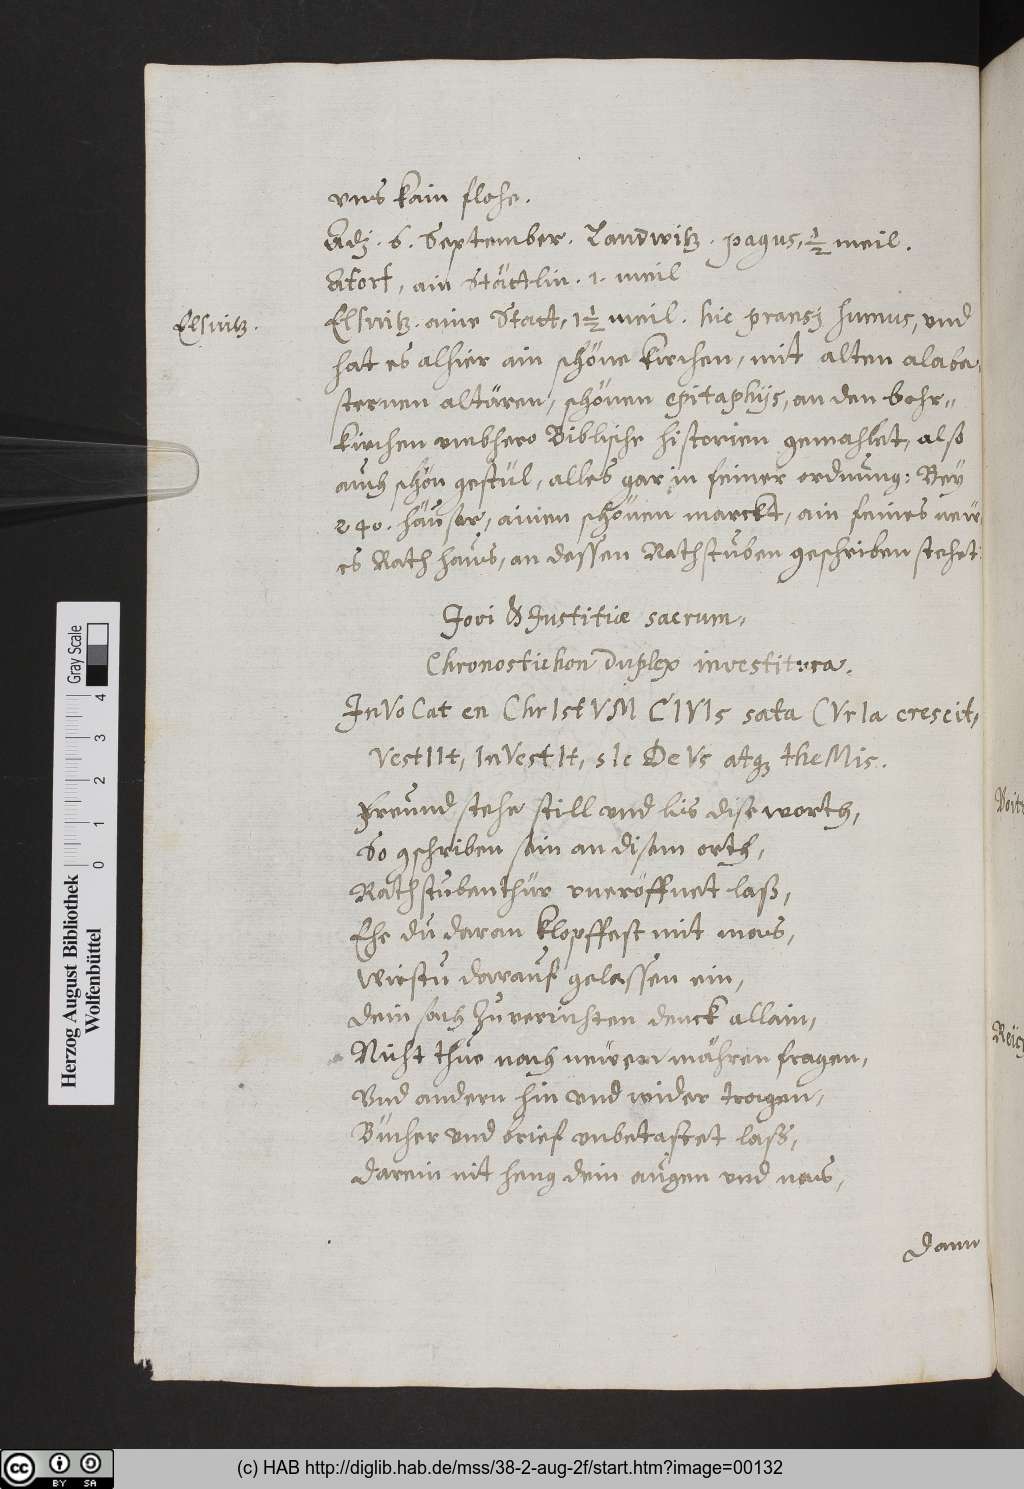 vns kain flohe.
Adj. 6. September. Landwitz. pagus, ½ meil.
Aforf, ain Stättlin. 1. meil
Elsnitz.
Elsnitz. aine Statt, 1½ meil. hic pransj sumus, vnd
hat es alhier ain schöne Kirchen, mit alten alaba-
sternen altären, schönen epitaphijs, an den bohr-
kirchen vmbhero Biblische historien gemahlet, also
auch schön gestül, alles gar in feiner ordnung: Bey
240. häuser, ainen schönen marckt, ain feines new
es Rath haus, an dessen Rathstuben geschriben stehet:
Jovi & Justitiæ sacrum.
Chronostichon Duplex investitura.
InVoCat en ChrIstVM CIVIs sata CVrIa crescit,
VestIIt, InVestIt, sIc DeVs atq3 theMis.
Freund stehe still vnd lis dise worth,
So gschriben sein an disem orth,
Rathstubenthür vneröffnet laß,
Ehe du daran klopffest mit mas,
Wirstu darauf gelassen ein,
Dein sach zu verrichten denck allain,
Nicht thue nach newen mähren fragen,
Vnd andern hin vnd wider tragen,
Bücher vnd brief vnbetastet laß,
Darein nit heng dein augen vnd nas,
Dann
Voit
Reich
Herzog August Bibliothek
Wolfenbüttel
Gray Scale
0 1 2 3 4
BY SA
(c) HAB http://diglib.hab.de/mss/38-2-aug-2f/start.htm?image=00132